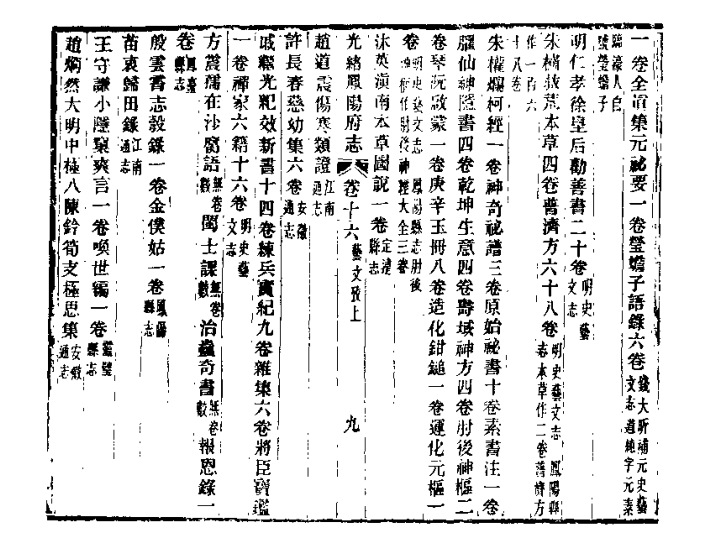 一卷全眞集元祕要一卷瑩蟾子語錄六卷錢大昕補元史藝文志道純字元素
號瑩蟾子
明仁孝徐皇后勸善書二十卷明史藝文志
朱橚救荒本草四卷普濟方六十八卷明史藝文志鳳陽縣志本草作二卷普濟方
作一百六十八卷
朱權爛柯經一卷神奇祕譜三卷原始祕書十卷素書注一卷
臞仙神隱書四卷乾坤生意四卷壽域神方四卷肘後神樞二
卷琴阮啟蒙一卷庚辛玉冊八卷造化鉗鎚一卷運化元樞一
卷明史藝文志鳳陽縣志肘後神樞作肘後神樞大全三卷
沐英滇南本草圖說一卷定遠縣志
光緒鳳陽府志 卷十六 藝文攷上 九
趙道震傷寒類證江南通志
許長春慈幼集六卷安徽通志
戚繼光紀效新書十四卷練兵實紀九卷雜集六卷將臣寶鑑
一卷禪家六籍十六卷明史藝文志
方震孺在沙窩語無卷數閩士課無卷數治蠱奇書無卷數報恩錄一
卷鳳臺縣志
殷雲霄志穀錄一卷金僕姑一卷鳳陽縣志
苗衷歸田錄江南通志
王守謙小隱窠爽言一卷喚世編一卷靈璧縣志
趙炯然大明中極八陳鈐荀支極思集安徽通志